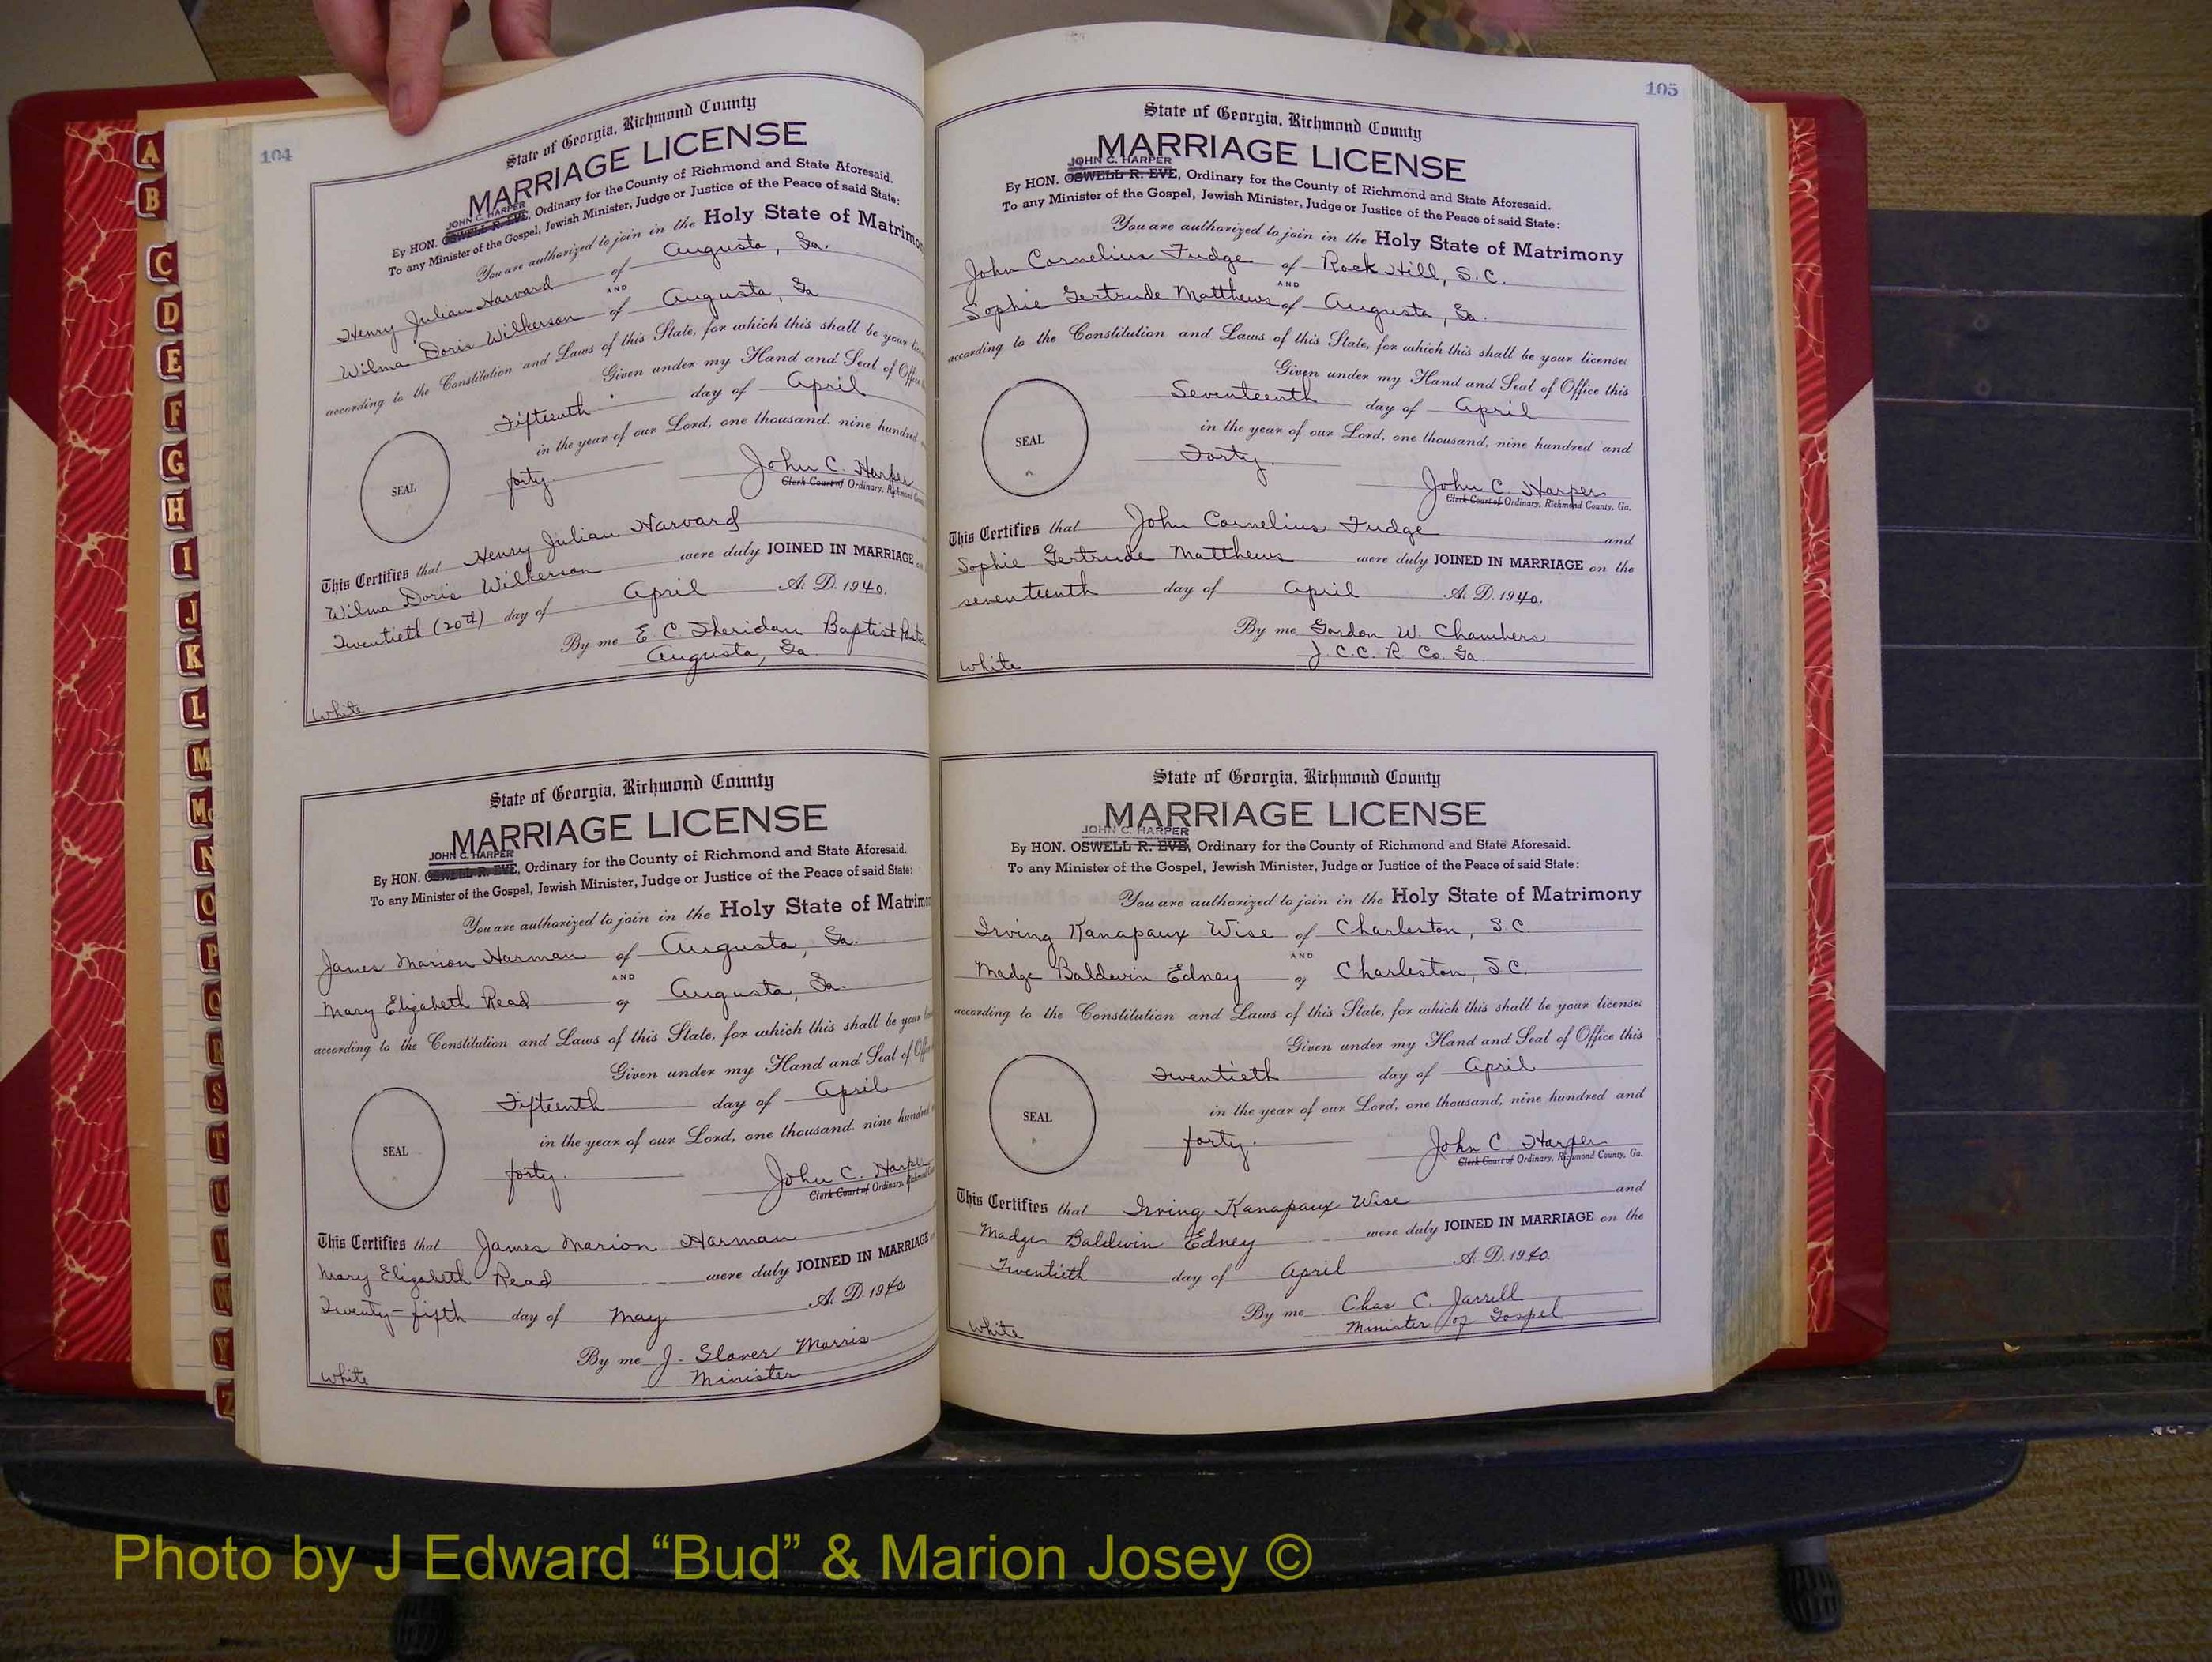 104
State of Georgia, Richmond County
MARRIAGE LICENSE
JOHN C. HARPER
By HON. OSWELL R. EVE, Ordinary for the County of Richmond and State Aforesaid.
To any Minister of the Gospel, Jewish Minister, Judge or Justice of the Peace of said State:
You are authorized to join in the Holy State of Matrimo
Henry Julian Harvard of Augusta, Ga.
AND
Wilma Doris Wilkerson of Augusta, Ga
according to the Constitution and Laws of this State, for which this shall be your
Given under my Hand and Seal of Offi
Fifteenth day of April
in the year of our Lord, one thousand, nine hundred
forty
John C. Harper
Clerk Court of Ordinary, Richmond
SEAL
This Certifies that Henry Julian Harvard
Wilma Doris Wilkerson were duly JOINED IN MARRIAGE
Twentieth (20th) day of April A. D. 1940.
By me E. C. Sheridan Baptist
Augusta, Ga.
White
State of Georgia, Richmond County
MARRIAGE LICENSE
JOHN C. HARPER
By HON. OSWELL R. EVE, Ordinary for the County of Richmond and State Aforesaid.
To any Minister of the Gospel, Jewish Minister, Judge or Justice of the Peace of said State:
You are authorized to join in the Holy State of Matrimo
James Marion Harman of Augusta, Ga.
AND
Mary Elizabeth Read of Augusta, Ga.
according to the Constitution and Laws of this State, for which this shall be your
Given under my Hand and Seal of Off
Fifteenth day of April
in the year of our Lord, one thousand, nine hundred
forty.
John C. Harpe
Clerk Court of Ordinary, Richmond
SEAL
This Certifies that James Marion Harman
Mary Elizabeth Read were duly JOINED IN MARRIAGE
Twenty-fifth day of May A. D. 1940
By me J. Glover Morris
Minister
White
105
State of Georgia, Richmond County
MARRIAGE LICENSE
JOHN C. HARPER
By HON. OSWELL R. EVE, Ordinary for the County of Richmond and State Aforesaid.
To any Minister of the Gospel, Jewish Minister, Judge or Justice of the Peace of said State:
You are authorized to join in the Holy State of Matrimony
John Cornelius Fudge of Rock Hill, S.C.
AND
Sophie Gertrude Matthews of Augusta, Ga.
according to the Constitution and Laws of this State, for which this shall be your license:
Given under my Hand and Seal of Office this
Seventeenth day of April
in the year of our Lord, one thousand, nine hundred and
Forty.
John C. Harper
Clerk Court of Ordinary, Richmond County, Ga.
SEAL
This Certifies that John Cornelius Fudge and
Sophie Gertrude Matthews were duly JOINED IN MARRIAGE on the
seventeenth day of April A. D. 1940.
By me Gordon W. Chambers
J.C.C. R. Co. Ga.
White
State of Georgia, Richmond County
MARRIAGE LICENSE
JOHN C. HARPER
By HON. OSWELL R. EVE, Ordinary for the County of Richmond and State Aforesaid.
To any Minister of the Gospel, Jewish Minister, Judge or Justice of the Peace of said State:
You are authorized to join in the Holy State of Matrimony
Irving Kanapaux Wise of Charleston, S.C.
AND
Madge Baldwin Edney of Charleston, S.C.
according to the Constitution and Laws of this State, for which this shall be your license:
Given under my Hand and Seal of Office this
Twentieth day of April
in the year of our Lord, one thousand, nine hundred and
forty.
John C. Harper
Clerk Court of Ordinary, Richmond County, Ga.
SEAL
This Certifies that Irving Kanapaux Wise and
Madge Baldwin Edney were duly JOINED IN MARRIAGE on the
Twentieth day of April A. D. 1940.
By me Chas C. Jarrell
Minister of Gospel
White
A
B
C
D
E
F
G
H
I
J
K
L
M
Mc
N
O
P
Q
R
S
T
U
V
W
Y
Z
Photo by J Edward “Bud” & Marion Josey ©